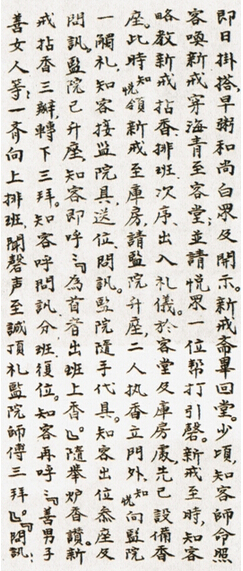 即日掛搭,早粥和尚白眾及開示。新戒斋畢回堂。少頃,知客師命照
客喚新戒穿海青至客堂,並請悦眾一位帮打引磬。新戒至時,知客
略教新戒拈香排班次序、出入礼儀。於客堂及庫房處,先已設備香
座。此時,知悦領新戒至庫房,請監院升座,二人执香立門外,知悦向監院
一觸礼,知客接監院具送位、問訊。監院隨手代具。知客出位叅座及
問訊,監院已升座,知客即呼:『為首者出班上香』。隨舉炉香讚,新
戒拈香三瓣,轉下三拜。知客呼問訊、分班、復位。知客再呼:『善男子
善女人等:一齊向上排班,聞磬声至誠頂礼監院師傅三拜』。『問訊』